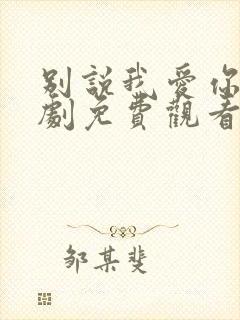 别說我愛你
劇免費觀看
邹某斐